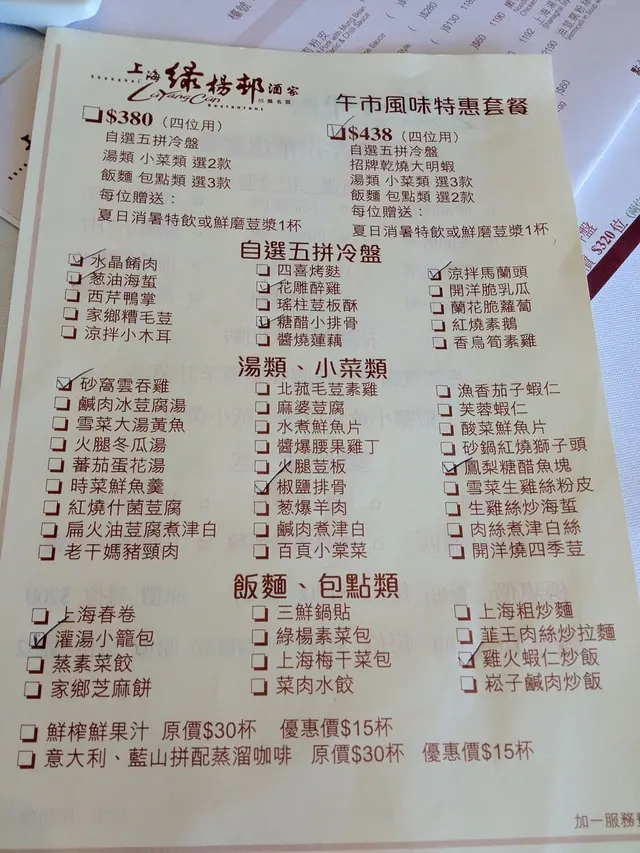 上海綠楊邨酒家
Shanghai
LuYangCun
Restaurant
午市風味特惠套餐
$380（四位用）
自選五拼冷盤
湯類 小菜類 選2款
飯麵 包點類 選3款
每位贈送：
夏日消暑特飲或鮮磨荳漿1杯
$438（四位用）
自選五拼冷盤
招牌乾燒大明蝦
湯類 小菜類 選3款
飯麵 包點類 選2款
每位贈送：
夏日消暑特飲或鮮磨荳漿1杯
自選五拼冷盤
水晶餚肉
葱油海蜇
西芹鴨掌
家鄉糟毛荳
涼拌小木耳
四喜烤麩
花雕醉雞
瑤柱荳板酥
糖醋小排骨
醬燒蓮藕
涼拌馬蘭頭
開洋脆乳瓜
蘭花脆蘿蔔
紅燒素鵝
香烏筍素雞
湯類、小菜類
砂窩雲吞雞
鹹肉冰荳腐湯
雪菜大湯黃魚
火腿冬瓜湯
蕃茄蛋花湯
時菜鮮魚羹
紅燒什菌荳腐
扁火油荳腐煮津白
老干媽豬頸肉
北菰毛荳素雞
麻婆荳腐
水煮鮮魚片
醬爆腰果雞丁
火腿荳板
椒鹽排骨
葱爆羊肉
鹹肉煮津白
百頁小棠菜
漁香茄子蝦仁
芙蓉蝦仁
酸菜鮮魚片
砂鍋紅燒獅子頭
鳳梨糖醋魚塊
雪菜生雞絲粉皮
生雞絲炒海蜇
肉絲煮津白絲
開洋燒四季荳
飯麵、包點類
上海春卷
灌湯小籠包
蒸素菜餃
家鄉芝麻餅
三鮮鍋貼
綠楊素菜包
上海梅干菜包
菜肉水餃
上海粗炒麵
韮王肉絲炒拉麵
雞火蝦仁炒飯
崧子鹹肉炒飯
鮮榨鮮果汁 原價$30杯 優惠價$15杯
意大利、藍山拼配蒸溜咖啡 原價$30杯 優惠價$15杯
加一服務
$320位